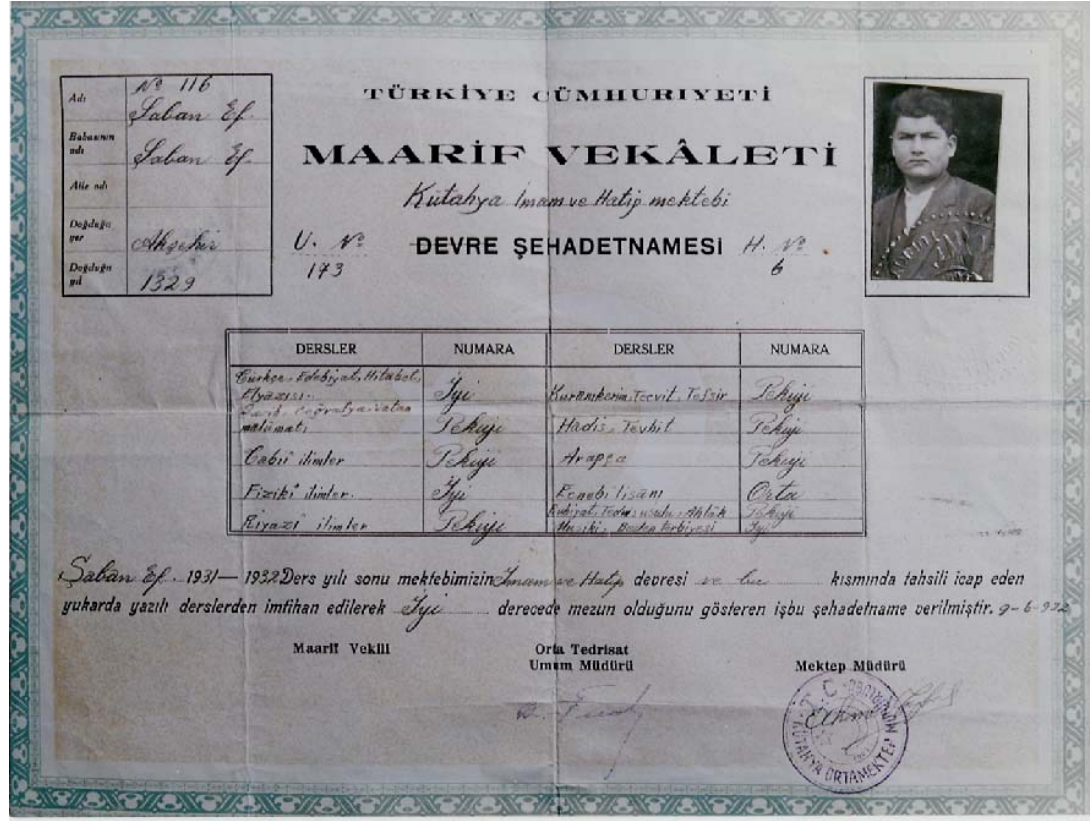 Nº 116
Adı Şaban Ef.
Babasının adı Şaban Ef.
Aile adı
Doğduğu yer Akşehir
Doğduğu yıl 1329
TÜRKİYE CÜMHURIYETİ
MAARİF VEKÂLETİ
Kütahya İmam ve Hatip mektebi
U. Nº 173
DEVRE ŞEHADETNAMESİ
H. Nº 6
DERSLER NUMARA DERSLER NUMARA
Türkçe, Edebiyat, Hitabet, Elyazısı. İyi Kuranıkerim, Tecvit, Tefsir Pekiyi
Tarih, Coğrafya, vatan malûmatı Pekiyi Hadis, Tevhit Pekiyi
Tabiî ilimler Pekiyi Arapça Pekiyi
Fizikî ilimler. İyi Ecnebi lisanı Orta
Riyazî ilimler Pekiyi usulu, Ahlâk Pekiyi
Musiki, Beden terbiyesi İyi
Şaban Ef. 1931—1932 Ders yılı sonu mektebimizin İmam ve Hatip devresi ve bu kısmında tahsili icap eden
yukarda yazılı derslerden imtihan edilerek İyi derecede mezun olduğunu gösteren işbu şehadetname verilmiştir. 9-6-932
Maarif Vekili
Orta Tedrisat
Umum Müdürü
Mektep Müdürü
T. C.
KÜTAHYA ORTAMEKTEP